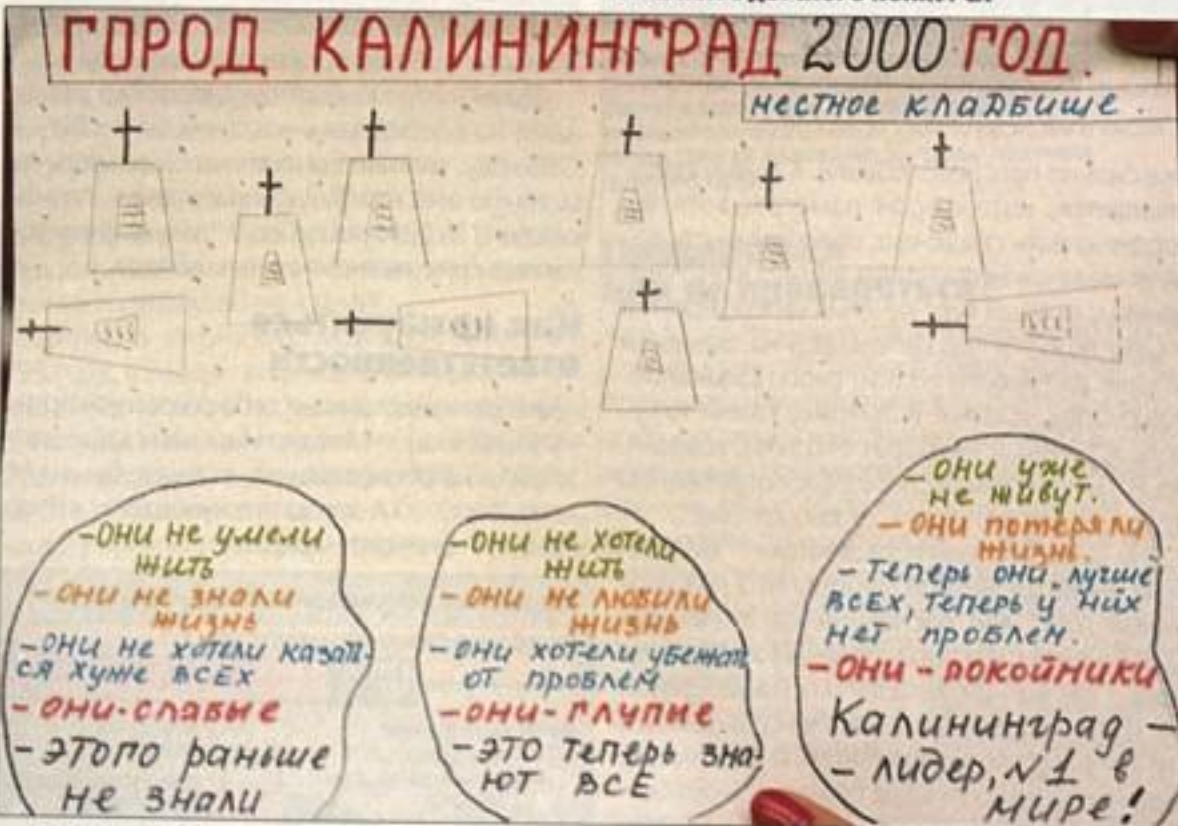 ГОРОД КАЛИНИНГРАД 2000 ГОД.
МЕСТНОЕ КЛАДБИЩЕ.
-ОНИ НЕ УМЕЛИ
ЖИТЬ
-ОНИ НЕ ЗНАЛИ
ЖИЗНЬ
-ОНИ НЕ ХОТЕЛИ КАЗАТЬ-
СЯ ХУЖЕ ВСЕХ
-ОНИ-СЛАБЫЕ
-ЭТОГО раньше
НЕ ЗНАЛИ
-ОНИ НЕ ХОТЕЛИ
ЖИТЬ
-ОНИ НЕ ЛЮБИЛИ
ЖИЗНЬ
-ОНИ ХОТЕЛИ УБЕЖАТЬ
ОТ ПРОБЛЕМ
-ОНИ-ГЛУПЫЕ
-ЭТО ТЕПЕРЬ ЗНА-
ЮТ ВСЕ
-ОНИ УЖЕ
НЕ ЖИВУТ.
-ОНИ ПОТЕРЯЛИ
ЖИЗНЬ.
-ТЕПЕРЬ ОНИ ЛУЧШЕ
ВСЕХ, ТЕПЕРЬ У НИХ
НЕТ ПРОБЛЕМ.
-ОНИ-ПОКОЙНИКИ
Калининград -
- лидер, №1 в
МИРЕ!